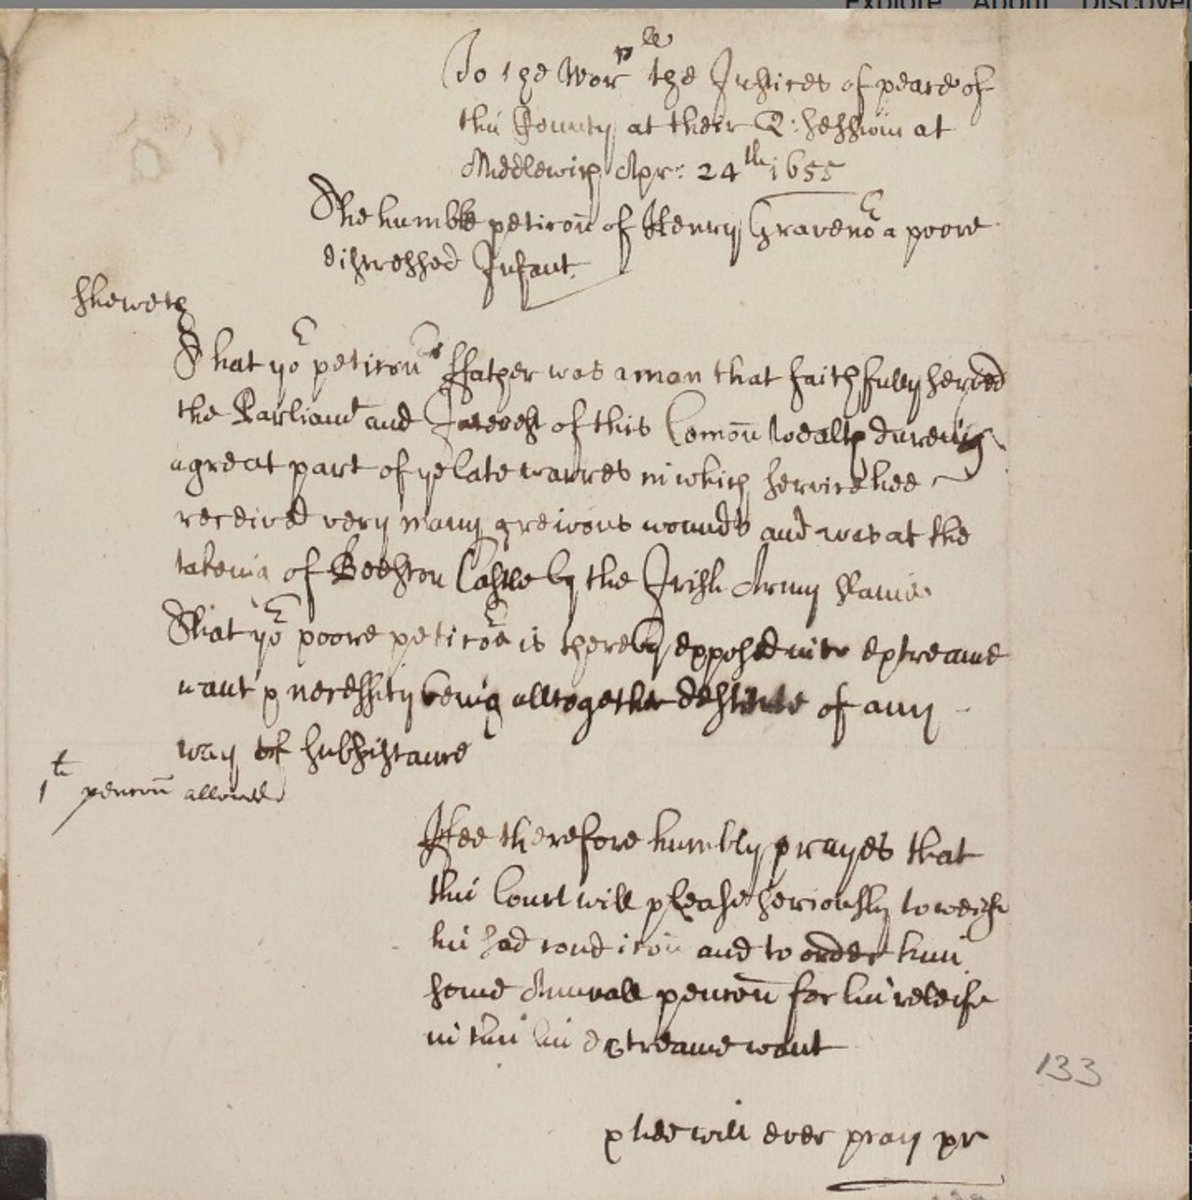 Explore About Discover
To the Worpll the Justices of peace of
this County at their Q: Sessions at
Middlewich Apr: 24th 1655
The humble peticon of Henry Gravenor a poore
distressed Infant
Sheweth
That yor peticonrs ffather was a man that faithfully served
the Parliamt and Interest of this Comon Wealth dureing
a great part of ye late warres in which service hee
received very many greivous wounds and was at the
takeing of Beeston Castle by the Irish Army slaine.
That yor poore peticoner is thereby exposed into extreame
want & necessity being alltogether destitute of any
way of subsistance
pencon allowed
Hee therefore humbly prayes that
this Court will please seriously to weigh
his sad condicon and to order him
some Annuall pencon for his releife
in this his extreame want
& hee will ever pray &c
133